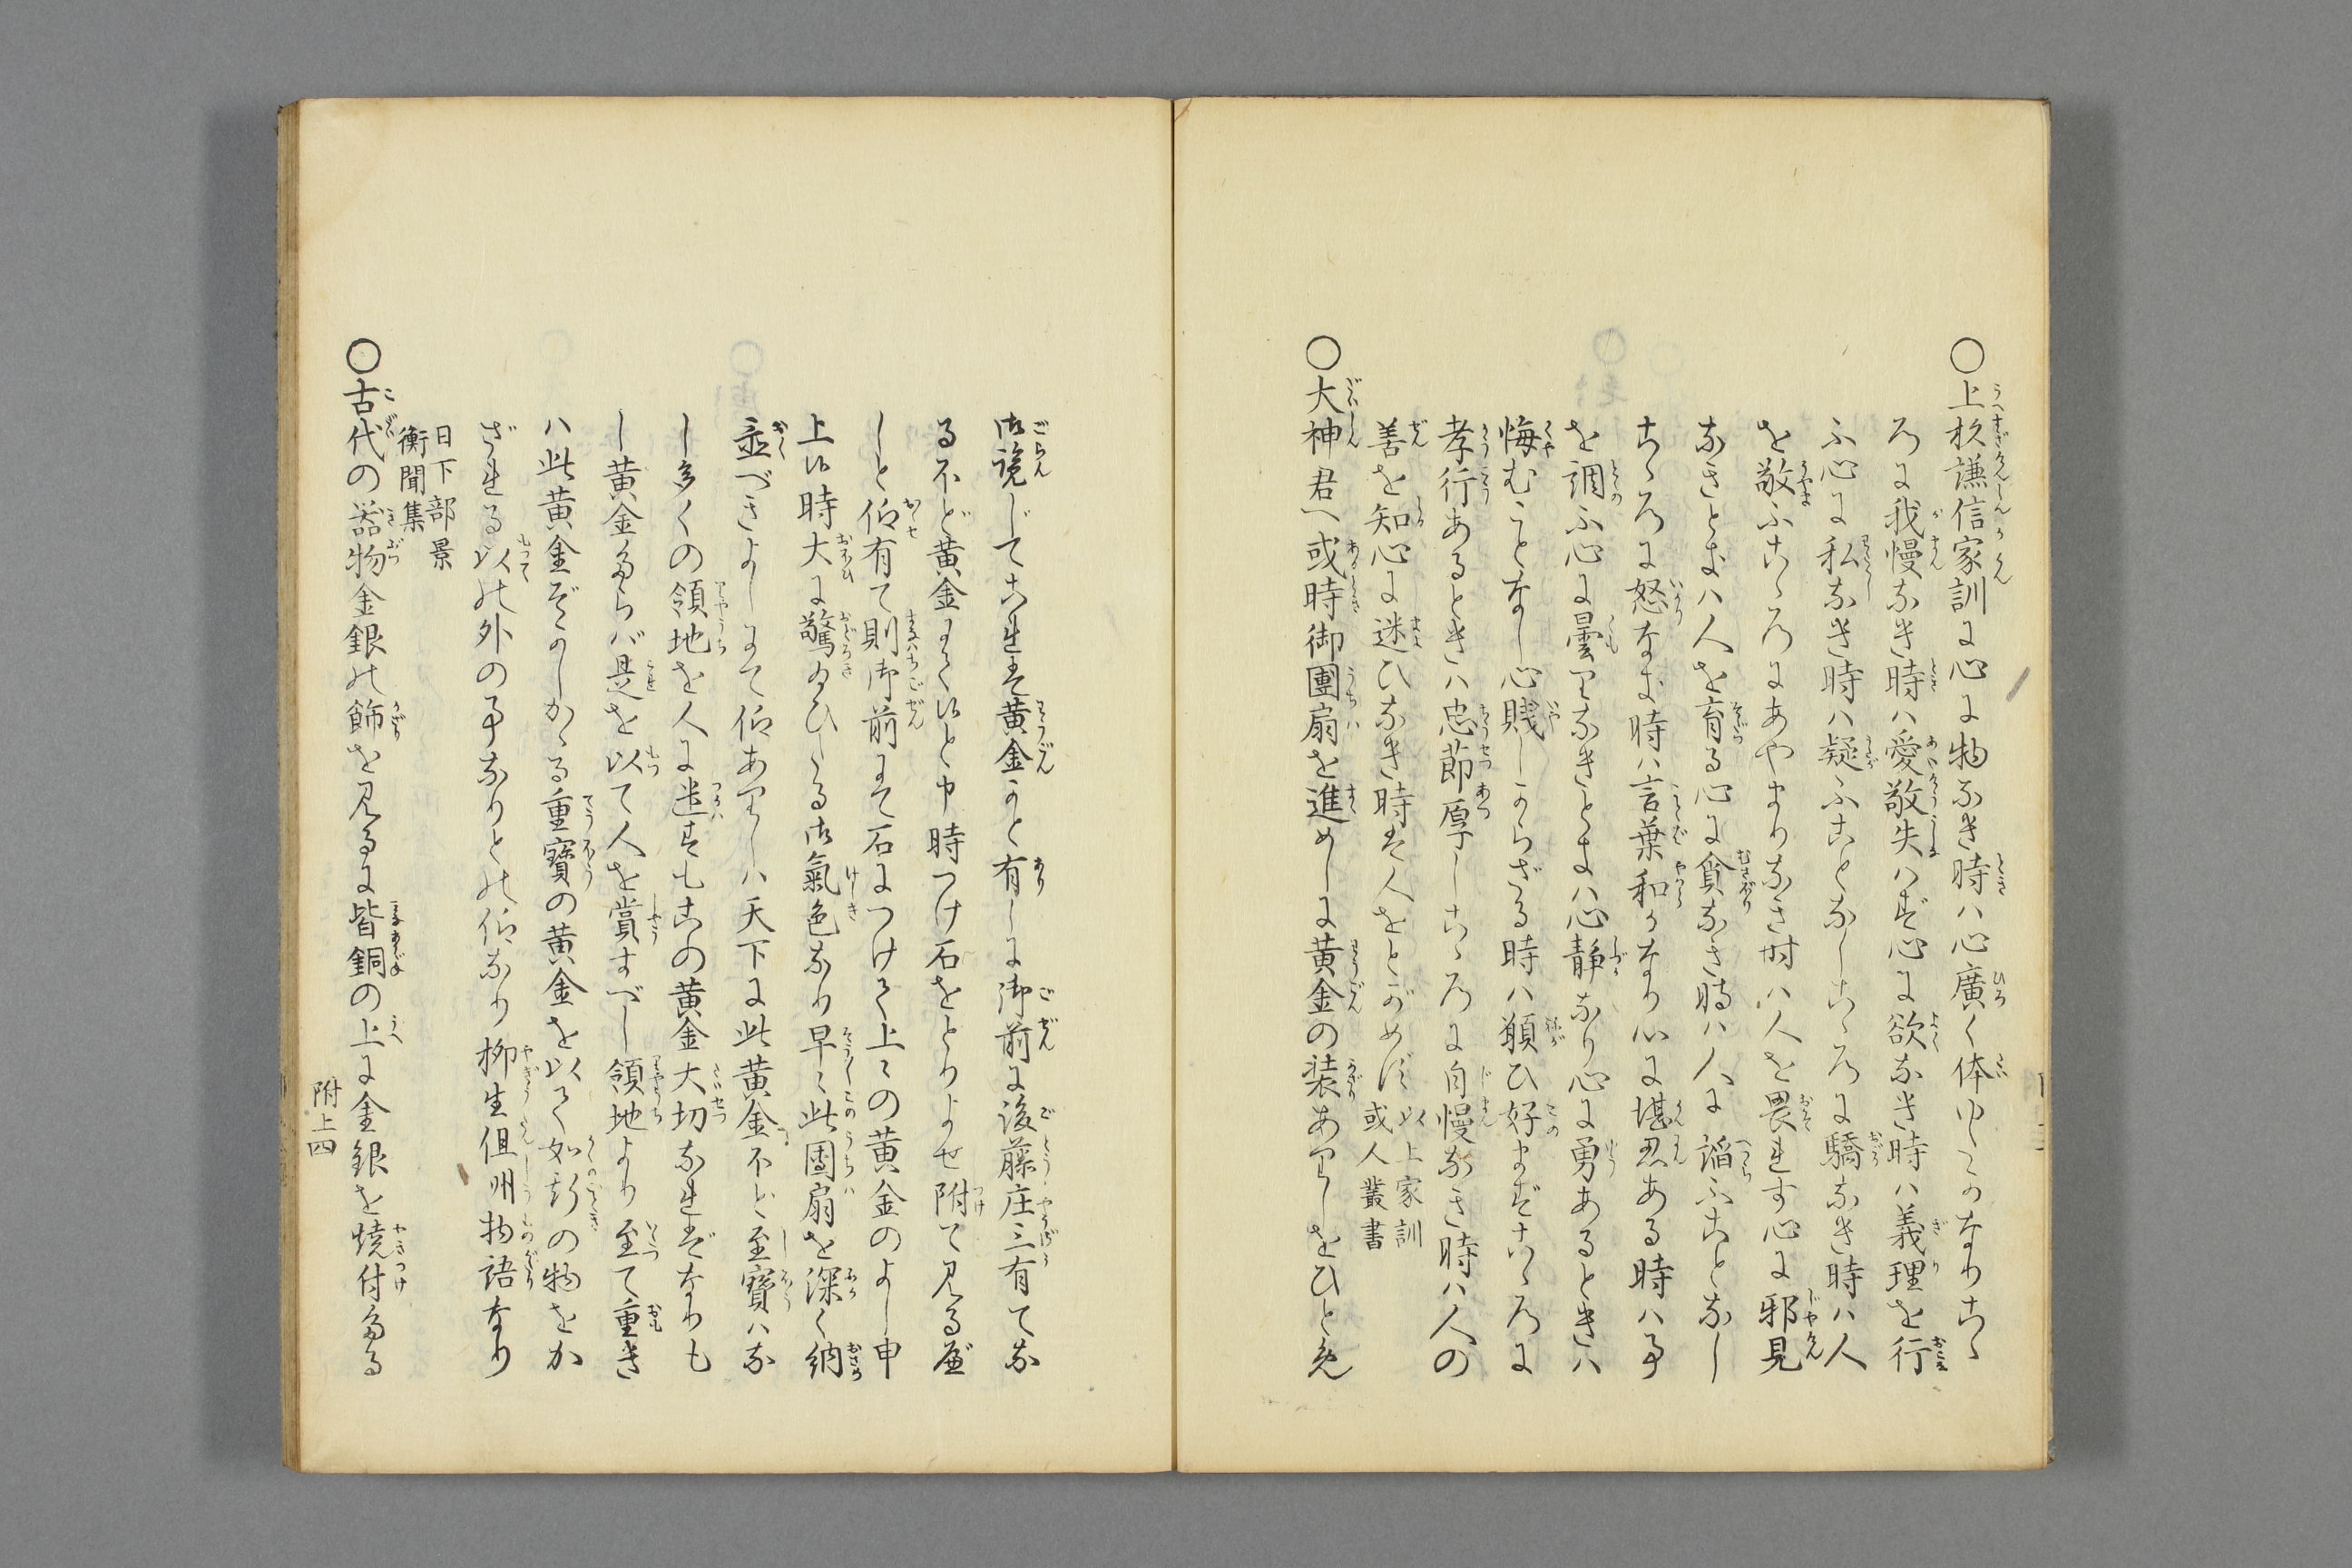 〇上杉謙信家訓に心に物なき時ハ心廣く体ゆたかなりこゝ
ろに我慢なき時ハ愛敬失ハず心に欲なき時ハ義理を行
ふ心に私なき時ハ疑ふことなしこゝろに驕なき時ハ人
を敬ふこゝろにあやまりなき時ハ人を畏れず心に邪見
なきときハ人を育る心に貪なき時ハ人に諂ふことなし
こゝろに怒なき時ハ言葉和かなり心に堪忍ある時ハ事
を調ふ心に曇りなきときハ心静なり心に勇あるときハ
悔むことなし心賤しからざる時ハ願ひ好まずこゝろに
孝行あるときハ忠節厚しこゝろに自慢なき時ハ人の
善を知心に迷ひなき時は人をとがめず以上家訓
或人叢書
〇大神君へ或時御團扇を進めしに黄金の装ありしをひと免
御覧じてこれは黄金かと有しに御前に後藤庄三有てな
るほど黄金にて候と申時つけ石をとりよせ附て見るべ
しと仰有て則御前にて石につけて上々の黄金のよし申
上候時大に驚給ひたる御氣色なり早々此團扇を深く納
置べきよしにて仰ありしハ天下に此黄金ほど至寶ハな
し多くの領地を人に遣すもこの黄金大切なればなりも
し黄金ならバ是を以て人を賞すべし領地より至て重き
ハ此黄金ぞかしかゝる重寶の黄金を以て如斯の物をか
ざれる以の外の事なりとの仰なり柳生但州物語なり
日下部景
衡聞集
〇古代の器物金銀の飾を見るに皆銅の上に金銀を焼付たる
附上四